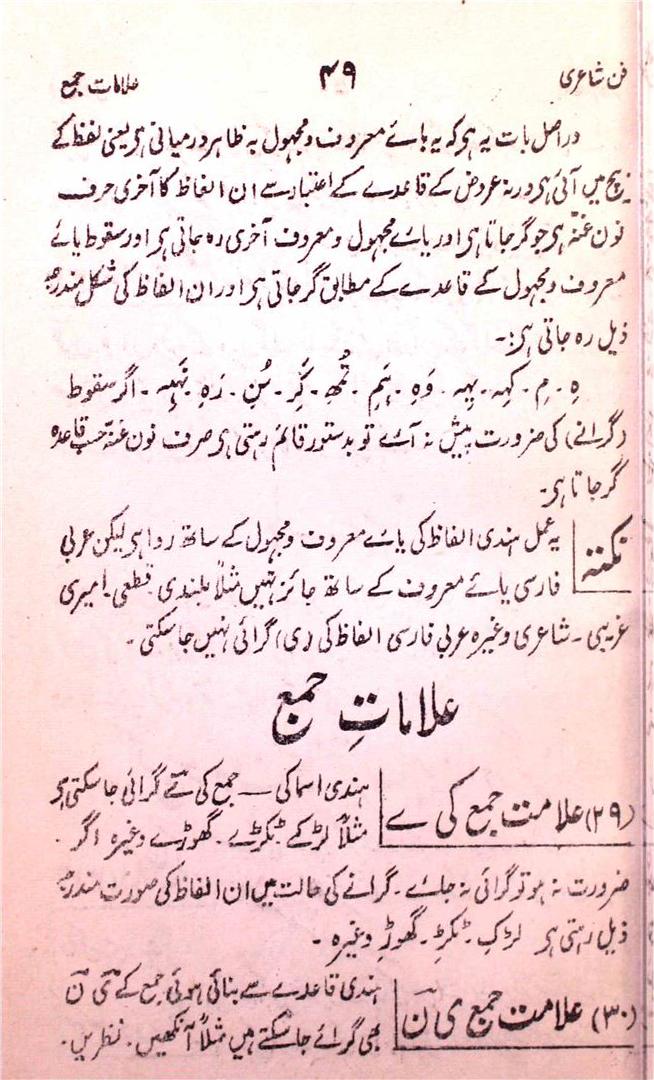 فن شاعری ۴۹ علامات جمع
در اصل بات یہ ہر کہ یہ یائے معروف و مجہول بہ ظاہر درمیانی ہر یعنی لفظ کے
بیچ میں آئی ہر ورنہ عروض کے قاعدے کے اعتبار سے ان الفاظ کا آخری حرف
نون غنّہ ہر جو گر جاتا ہر اور یائے مجہول و معروف آخری رہ جاتی ہر اور سقوط یائے
معروف و مجہول کے قاعدے کے مطابق گر جاتی ہر اور ان الفاظ کی شکل مندرجہ
ذیل رہ جاتی ہر:۔
ہِ ۔ مِ ۔ کہِہ ۔ یہِہ ۔ وَہِ ۔ ہَمِ ۔ تُمھِ ۔ کَرِ ۔ سُنِ ۔ رَہِ ۔ نَہِہ ۔ اگر سقوط
(گرانے) کی ضرورت پیش نہ آئے تو بدستور قائم رہتی ہر صرف نون غنّہ حسب قاعدہ
گر جاتا ہر۔
نکتہ یہ عمل ہندی الفاظ کی یائے معروف و مجہول کے ساتھ روا ہر لیکن عربی
فارسی یائے معروف کے ساتھ جائز نہیں مثلاً بلندی ۔ قطعی ۔ امیری
غریبی ۔ شاعری وغیرہ عربی فارسی الفاظ کی (ی) گرائی نہیں جا سکتی ۔
علاماتِ جمع
(۲۹) علامت جمع کی ے ہندی اسما کی — جمع کی ے گرائی جا سکتی ہر
مثلاً لڑکے ۔ ٹکڑے ۔ گھوڑے وغیرہ اگر
ضرورت نہ ہو تو گرائی نہ جائے ۔ گرانے کی حالت میں ان الفاظ کی صورت مندرجہ
ذیل رہتی ہر لڑکِ ۔ ٹکڑِ ۔ گھوڑِ وغیرہ ۔
(۳۰) علامت جمع ی ن ہندی قاعدے سے بنائی ہوئی جمع کے ی ن
بھی گرائے جا سکتے ہیں مثلاً آنکھیں ۔ نظریں ۔